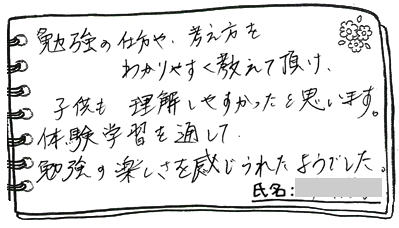 勉強の仕方や、考え方を
わかりやすく教えて頂け、
子供も 理解しやすかったと思います。
体験学習を通して、
勉強の楽しさを感じられたようでした。
氏名: